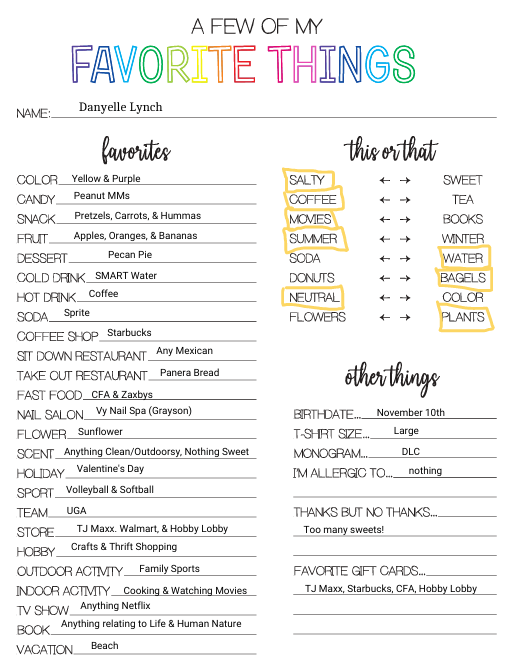 A FEW OF MY
FAVORITE THINGS
NAME: Danyelle Lynch
favorites
COLOR Yellow & Purple
CANDY Peanut MMs
SNACK Pretzels, Carrots, & Hummas
FRUIT Apples, Oranges, & Bananas
DESSERT Pecan Pie
COLD DRINK SMART Water
HOT DRINK Coffee
SODA Sprite
COFFEE SHOP Starbucks
SIT DOWN RESTAURANT Any Mexican
TAKE OUT RESTAURANT Panera Bread
FAST FOOD CFA & Zaxbys
NAIL SALON Vy Nail Spa (Grayson)
FLOWER Sunflower
SCENT Anything Clean/Outdoorsy, Nothing Sweet
HOLIDAY Valentine's Day
SPORT Volleyball & Softball
TEAM UGA
STORE TJ Maxx. Walmart, & Hobby Lobby
HOBBY Crafts & Thrift Shopping
OUTDOOR ACTIVITY Family Sports
INDOOR ACTIVITY Cooking & Watching Movies
TV SHOW Anything Netflix
BOOK Anything relating to Life & Human Nature
VACATION Beach
this or that
SALTY ← → SWEET
COFFEE ← → TEA
MOVIES ← → BOOKS
SUMMER ← → WINTER
SODA ← → WATER
DONUTS ← → BAGELS
NEUTRAL ← → COLOR
FLOWERS ← → PLANTS
other things
BIRTHDATE... November 10th
T-SHIRT SIZE... Large
MONOGRAM... DLC
I'M ALLERGIC TO... nothing
THANKS BUT NO THANKS...
Too many sweets!
FAVORITE GIFT CARDS...
TJ Maxx, Starbucks, CFA, Hobby Lobby